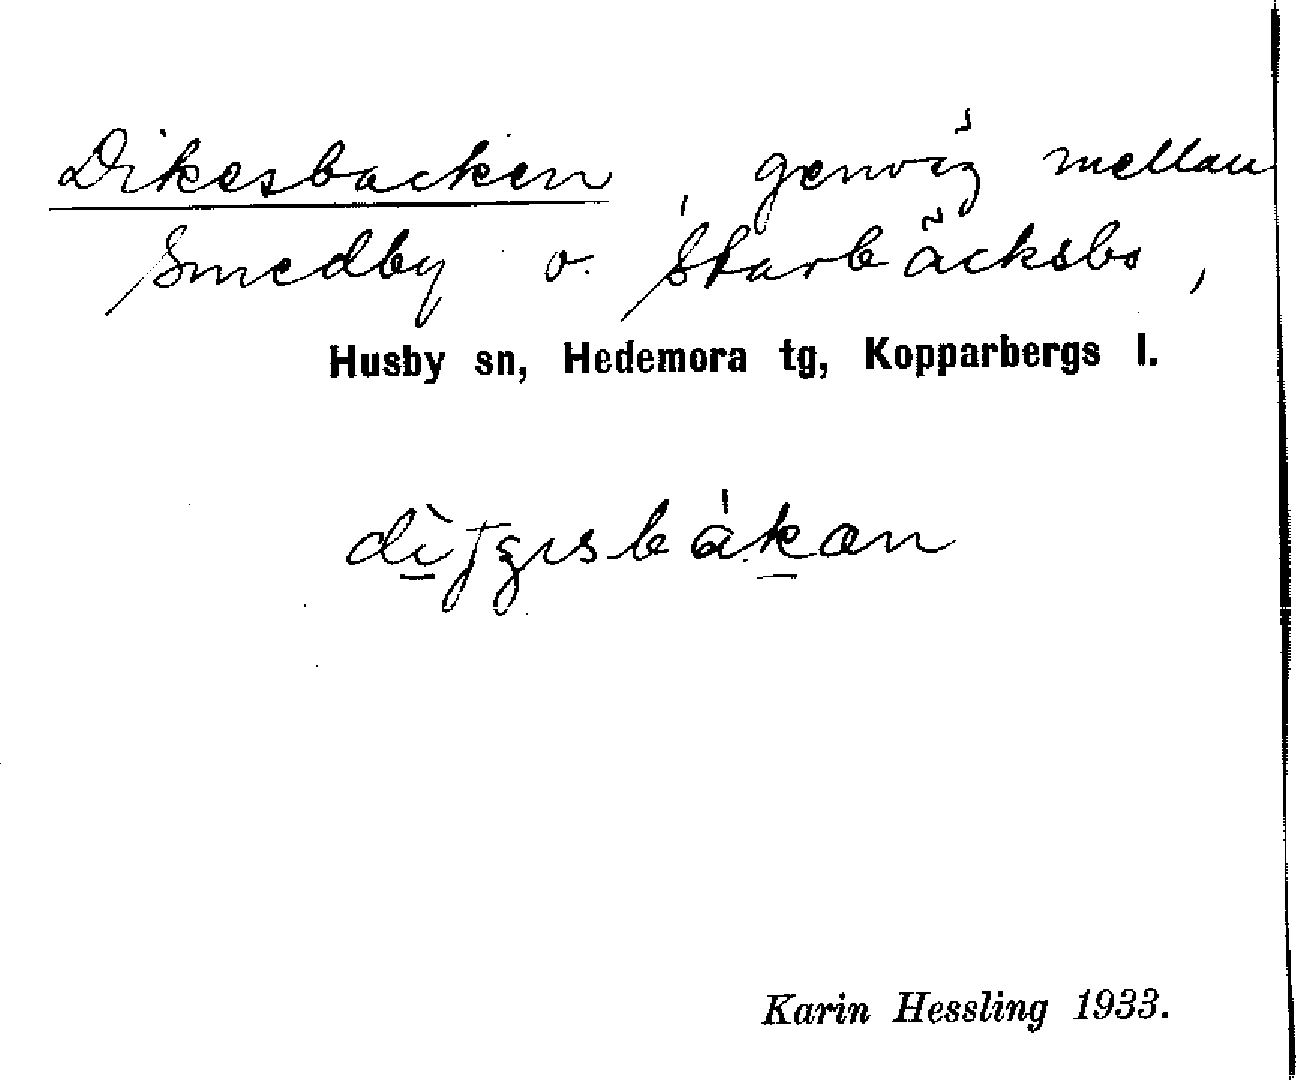 Dikesbacken, genväg mellan
Smedby o. Starbäcksbo,
Husby sn, Hedemora tg, Kopparbergs l.
Karin Hessling 1933.